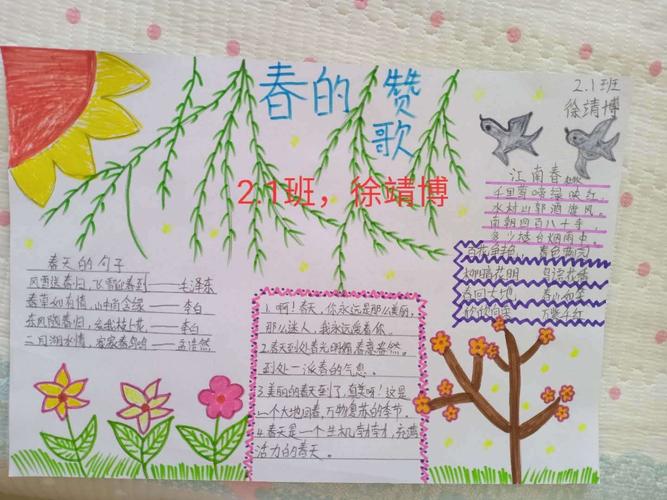 春的赞歌
2.1班
徐靖博
2.1班，徐靖博
江南春
千里莺啼绿映红，
水村山郭酒旗风。
南朝四百八十寺，
多少楼台烟雨中。
百花争艳 春色满园
柳暗花明 鸟语花香
春回大地
欣欣向荣 万紫千红
春天的句子
风雨送春归，飞雪迎春到——毛泽东
春草如有情，山中尚含绿——李白
东风随春归，发我枝上花——李白
二月湖水清，家家春鸟鸣——孟浩然
1.啊！春天，你永远是那么美丽，
那么迷人，我永远爱着你
2.春天到处春光明媚春意盎然。
到处一派春的气息。
3.美丽的春天到了，真美呀！这是
一个大地回春，万物复苏的季节。
4.春天是一个生机勃勃，充满
活力的春天。